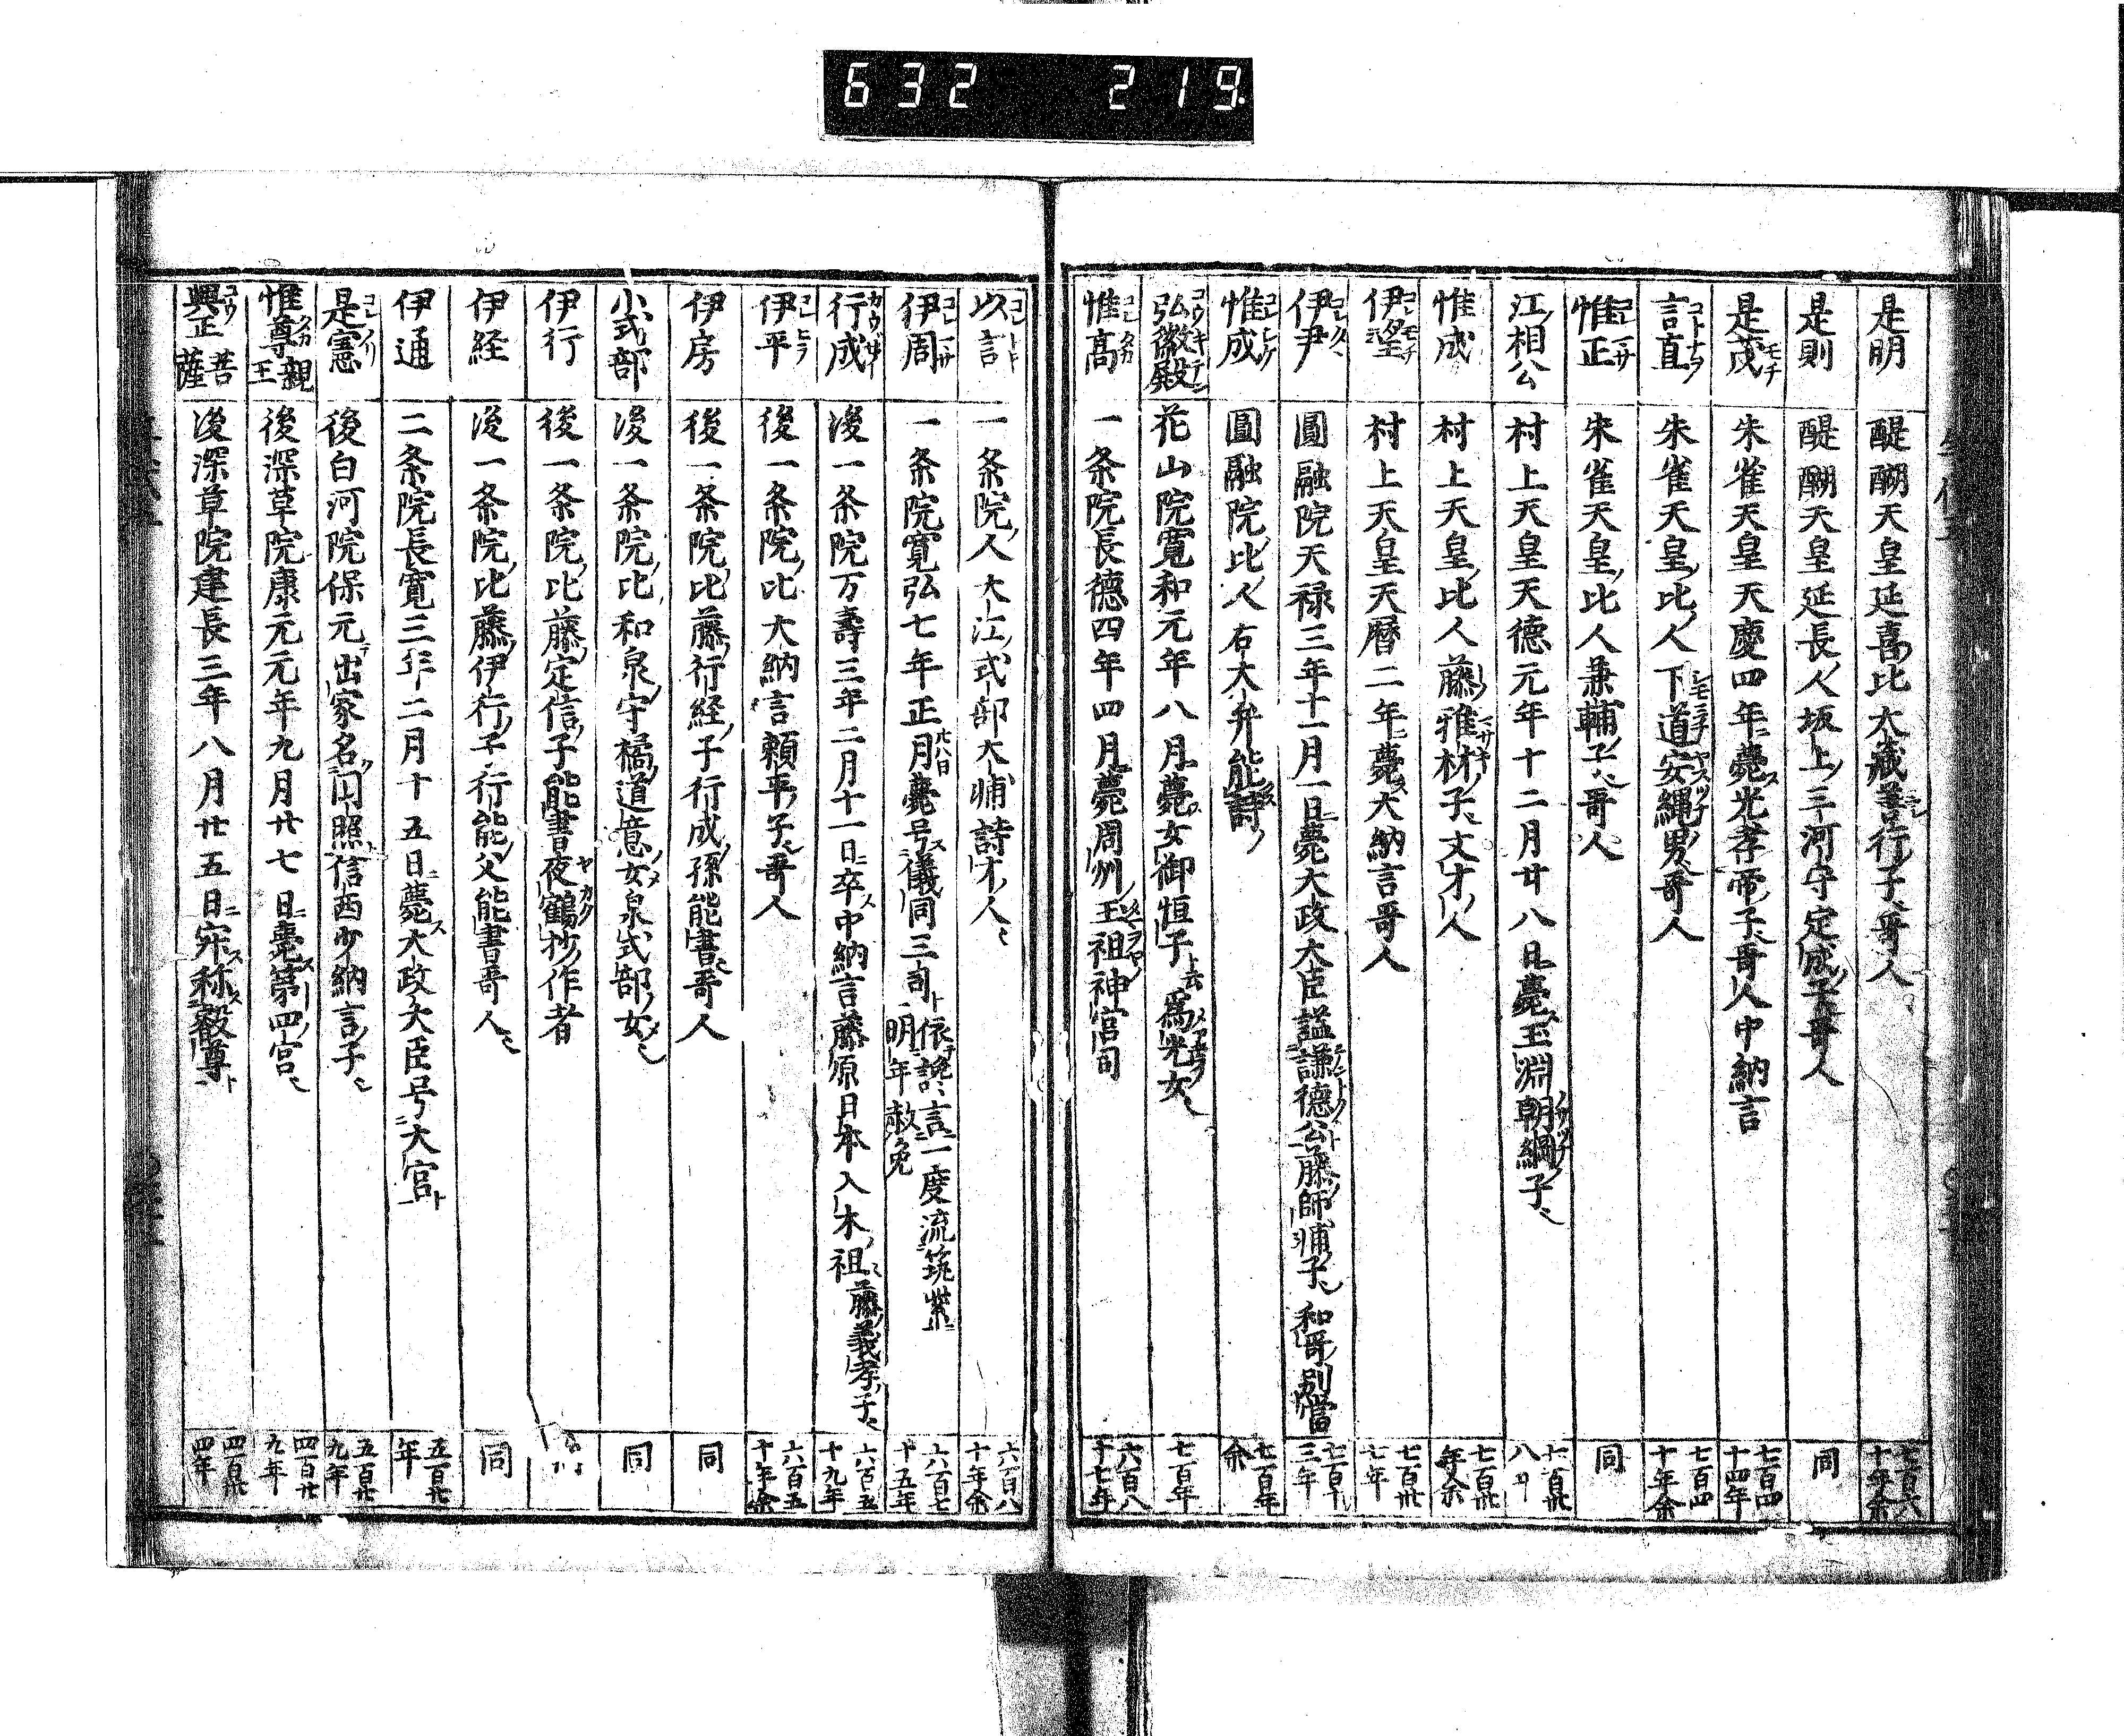 632 219.
是明 醍醐天皇延喜比大藏善行ノ子哥人 七百六十年余
是則 醍醐天皇延長ノ人坂上ノ三河守定成ノ子哥人 同
是茂 朱雀天皇天慶四年ニ薨ス光孝帝ノ子哥人中納言 七百四十四年
言直 朱雀天皇ノ比ノ人下道安縄男哥人 七百四十年余
惟正 朱雀天皇ノ比人兼輔ノ子哥人 同
江ノ相公 村上天皇天德元年十二月廿八日薨ス玉淵朝綱ノ子
惟成 村上天皇ノ比人藤ノ雅材ノ子文才ノ人 七百卅年余
伊望 村上天皇天曆二年ニ薨ス大納言哥人 七百卅七年
伊尹 圓融院天禄三年十一月一日ニ薨大政大臣謚謙德公藤師輔ノ子和哥別當 七百十三年
惟成 圓融院ノ比ノ人右大弁能詩 七百年余
弘徽殿 花山院寛和元年八月薨ス女御恒子ト云為光女 七百年
惟高 一条院長德四年四月薨周州ノ王祖神宮司 六百八十七年
以言 一条院ノ人大江ノ式部大輔詩才ノ人 六百八十年余
伊周 一条院寛弘七年正月廿八日薨号ス儀同三司ト依讒言一度流筑紫ニ明年赦免 六百七十五年
行成 後一条院万壽三年二月十一日ニ卒ス中納言藤原日本入木ノ祖藤ノ義孝ノ子 六百五十九年
伊平 後一条院ノ比大納言頼平ノ子哥人 六百五十年余
伊房 後一条院ノ比藤ノ行経ノ子行成ノ孫能書哥人 同
小式部 後一条院ノ比和泉守橘ノ道ノ女泉式部ノ女 同
伊行 後一条院ノ比藤ノ定信ノ子能書夜鶴抄作者
伊経 後一条院ノ比藤ノ伊行ノ子行能ノ父能書哥人 同
伊通 二条院長寛三年二月十五日ニ薨ス大政大臣号大宮ト 五百廿年
是憲 後白河院保元ニ出家名円照信西少納言ノ子 五百廿九年
惟尊親王 後深草院康元元年九月廿七日ニ薨ス第四ノ宮 四百廿九年
興正菩薩 後深草院建長三年八月廿五日ニ寂ス称ス叡尊ト 四百卅四年